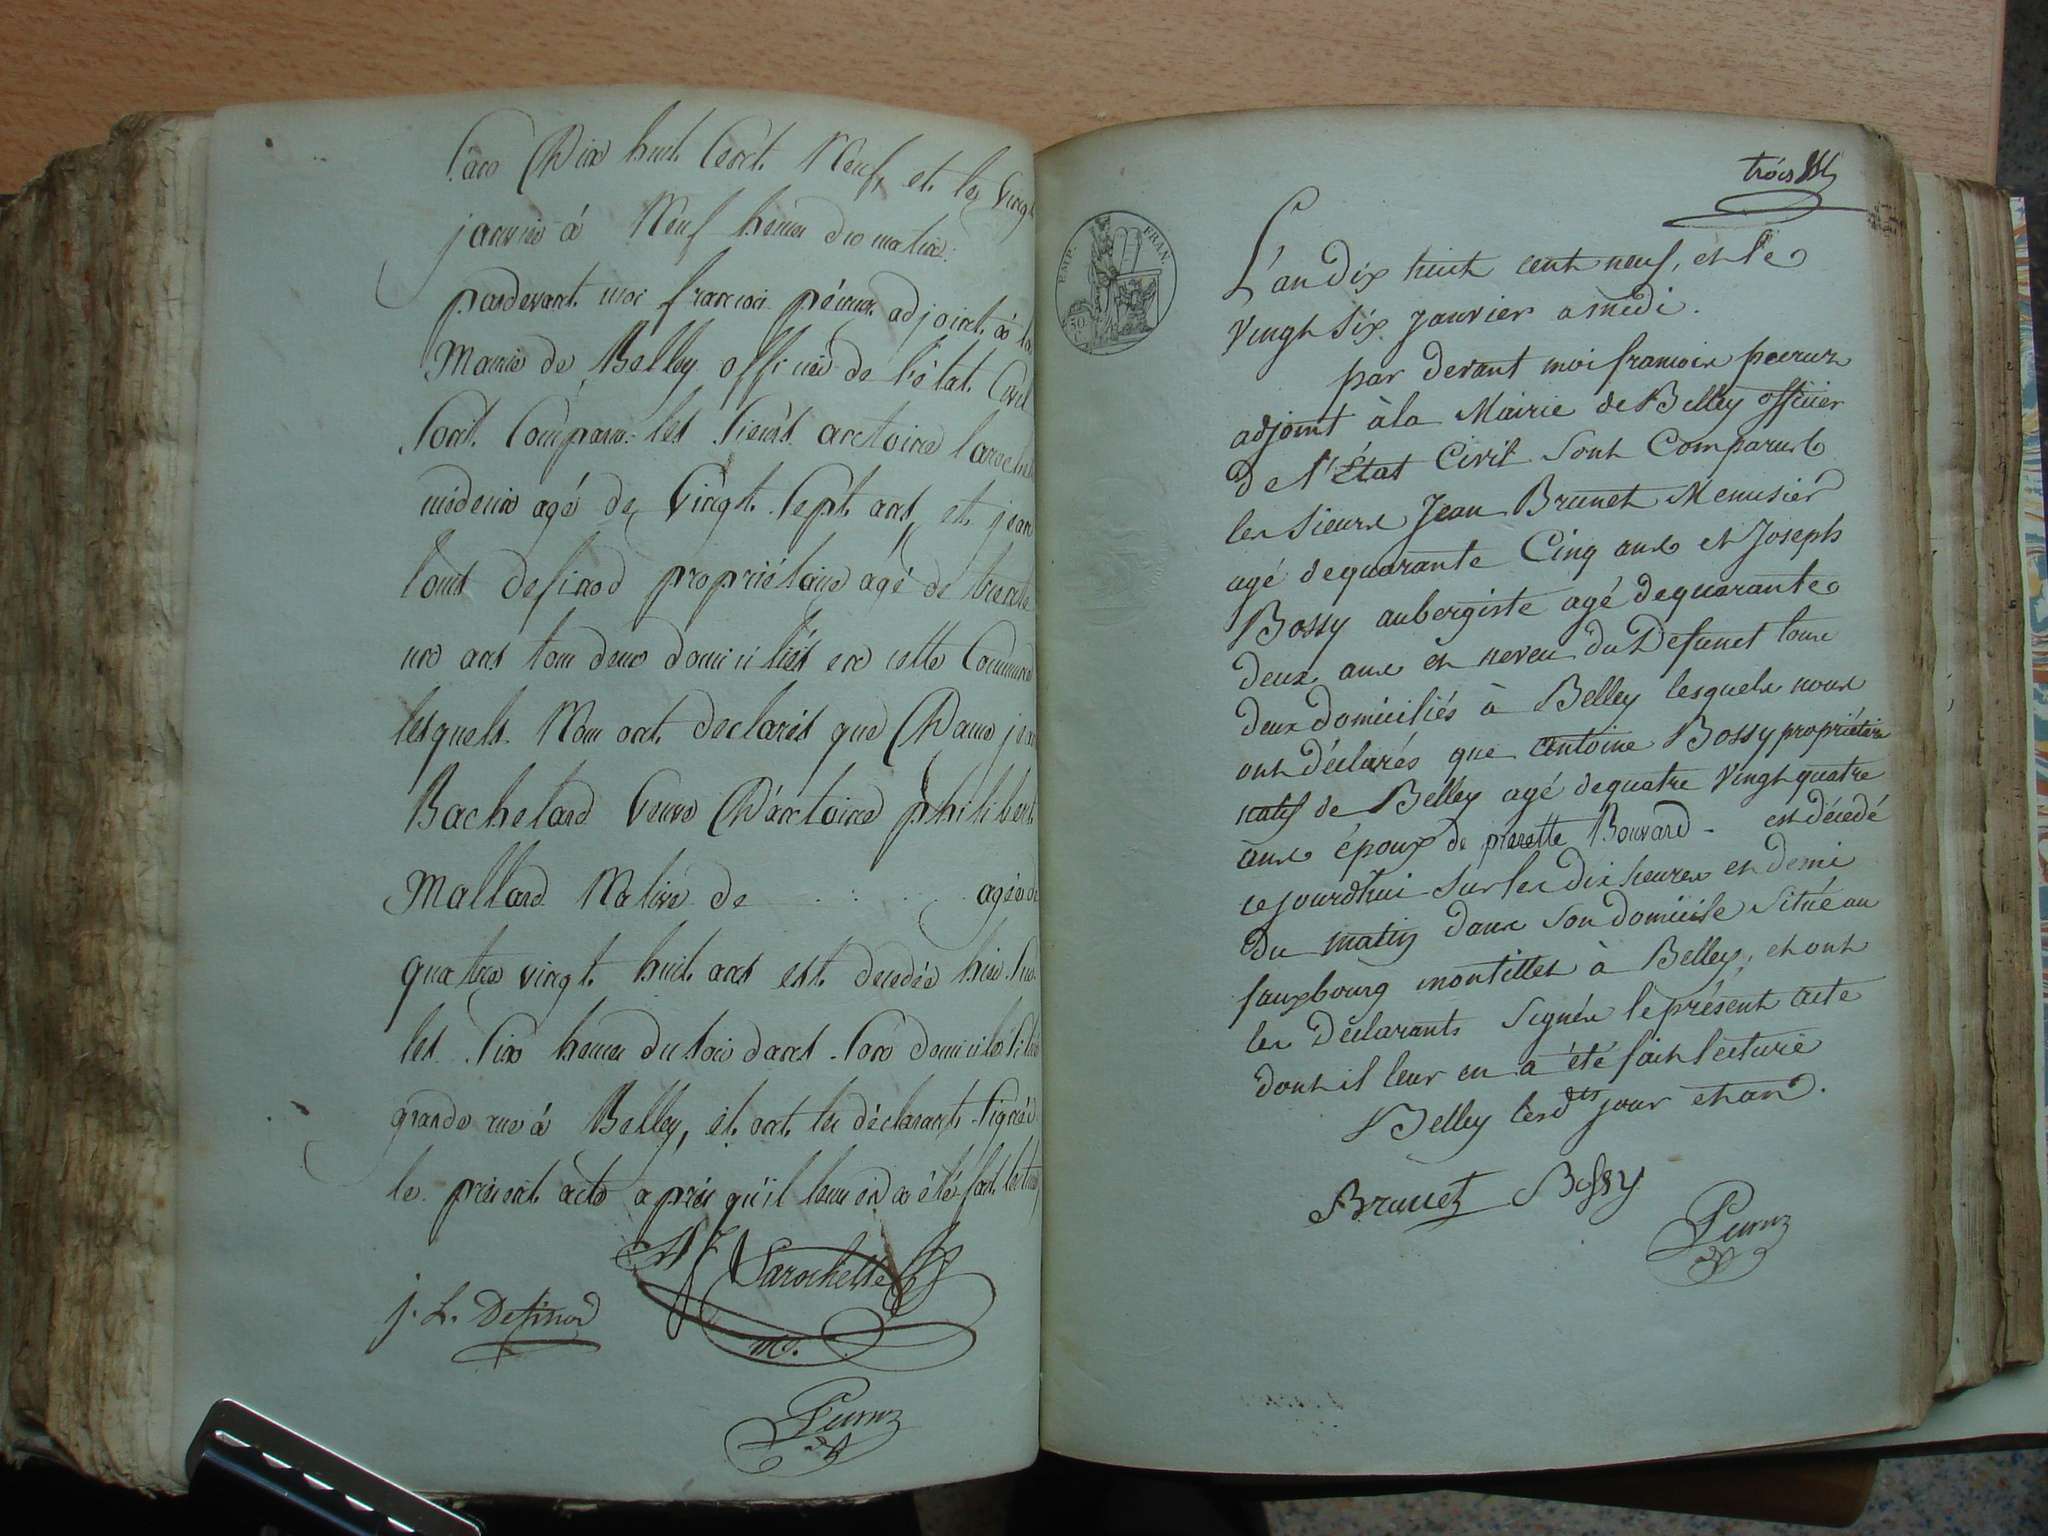 L'an Dix huit Cent Neuf, et le vingt
janvier à Neuf heures du matin
pardevant moi francois péruz adjoint à la
Mairie de Belley officier de l'état Civil
Sont Comparu les Sieurs antoine larochette
médecin agé de Vingt Sept ans, et jean
louis definod propriétaire agé de trente
un ans tous deux domiciliés en cette Commune
lesquels Nous ont declarés que Dame
Bachelard Veuve D'antoine philibert
Mallard Native de . . . agée de
quatre vingt huit ans est decedée hier Sur
les Six heures du soir dans Son domicile
grande rue à Belley, et ont les déclarants Signé
le présent acte après qu'il leur en a été fait lecture
Larochette
mD.
j. L. Definod
Peruz
trois
EMP. FRAN.
50
L'an dix huit cent neuf, et le
vingt Six Janvier a midi.
par devant moi francois peeruz
adjoint à la Mairie de Belley officier
de l'État Civil sont Comparus
les Sieurs Jean Brunet Menusier
agé de quarante Cinq ans et Joseph
Bossy aubergiste agé de quarante
deux ans et neveu du Defunct tous
deux domiciliés à Belley lesquels nous
ont déclarés que antoine Bossy propriétaire
natif de Belley agé de quatre vingt quatre
ans époux de pierrette Bouvard - est décedé
cejourdhui sur les dix heures et demi
du matin dans son domicile située au
fauxbourg montillet à Belley, et ont
les déclarants Signés le présent acte
dont il leur en a été fait lecture
Belley lesdts jour et an.
Brunet Bossy
Peruz